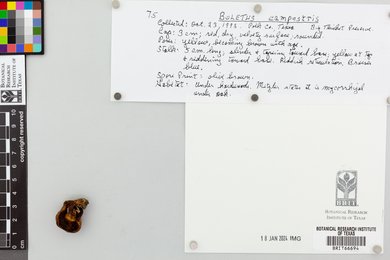 75 BOLETUS campestris
Collected: Oct. 23, 1998 Polk Co. Texas Big Thicket Preserve
Cap: 3 cm; red, dry, velvety surface, rounded.
Pores: yellow, becoming brown with age.
Stalk: 5 cm long, slender, tapering toward base; yellow at top
& reddening toward base. Reddish reticulation. Bruises
blue.
Spore Print: olive brown.
Habitat: Under hardwoods. Metzler states it is mycorrhizal
under oak.
BOTANICAL RESEARCH
INSTITUTE OF TEXAS
BRIT
BOTANICAL RESEARCH
INSTITUTE OF TEXAS
18 JAN 2024 IMG
BOTANICAL RESEARCH INSTITUTE
OF TEXAS
BRIT66694